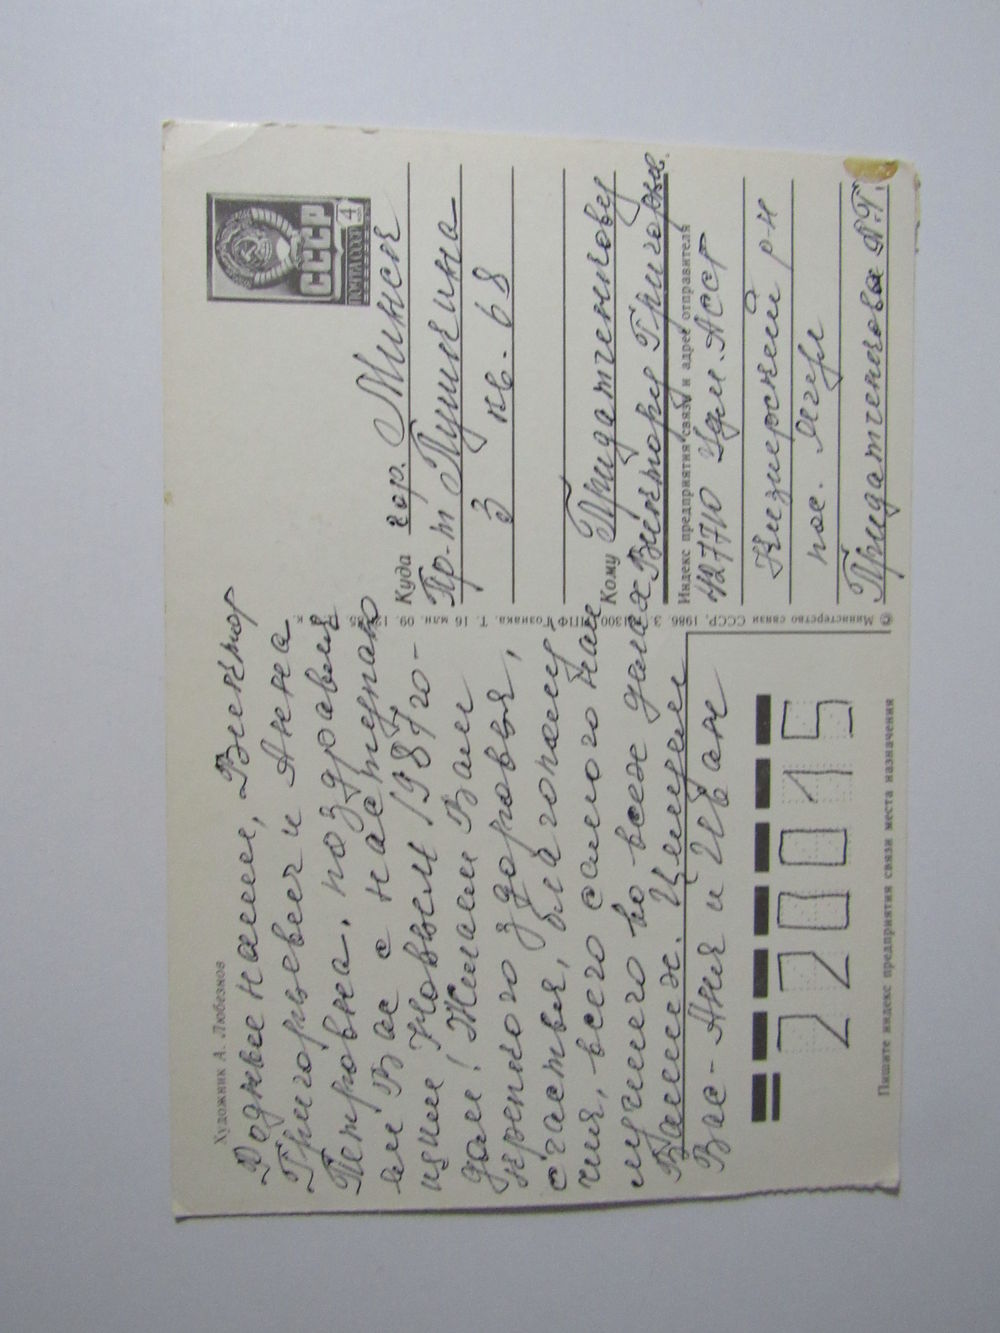 Художник А. Любезнов
Родные наши, Виктор
Григорьевич и Анна
Петровна, поздравля
ем Вас с наступаю
щим Новым 1987 го-
дом! Желаем Вам
крепкого здоровья,
счастья, благополу
чия, всего самого наи
лучшего во всех делах
Ваших. Целуем
Вас - Аня и Иван
220015
Пишите индекс предприятия связи места назначения
ПОЧТА СССР
4
КОП
СССР
Куда гор. Минск
Пр-т Пушкина
3 кв. 68
Кому Придатченкову
Виктору Григорьев.
Индекс предприятия связи и адрес отправителя
427710 Удм. АССР
Кизнерский р-н
пос. Ягул
Придатченкова А.Г.
© Министерство связи СССР, 1986. З. 81300. ППФ Гознака. Т. 16 млн. 09.